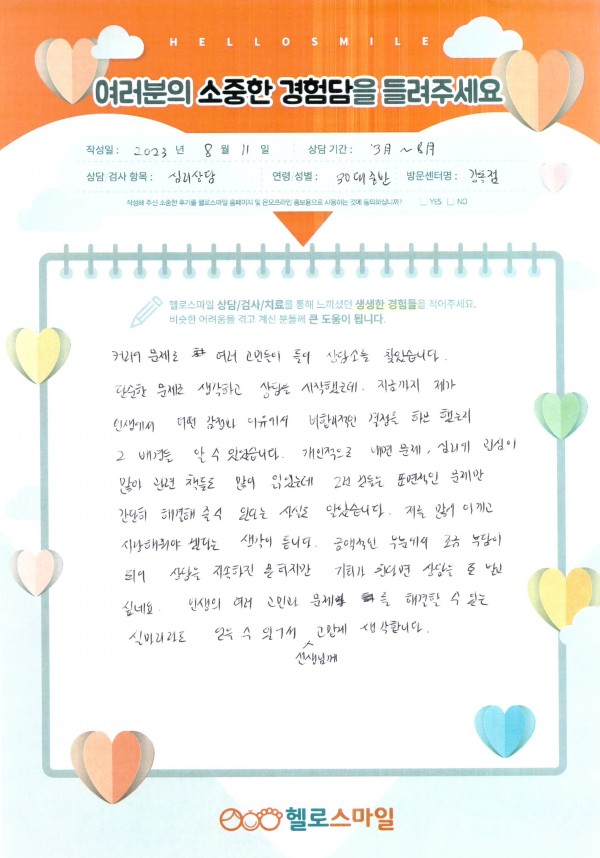 HELLOSMILE
여러분의 소중한 경험담을 들려주세요
작성일 : 2023 년 8 월 11 일 상담 기간 : 3月 ~ 8月
상담. 검사 항목 : 심리상담 연령. 성별 : 30대 중반 방문센터명 : 강동점
작성해 주신 소중한 후기를 헬로스마일 홈페이지 및 온오프라인 홍보용으로 사용하는 것에 동의하십니까? YES NO
헬로스마일 상담/검사/치료를 통해 느끼셨던 생생한 경험들을 적어주세요.
비슷한 어려움을 겪고 계신 분들께 큰 도움이 됩니다.
커리어 문제로 여러 고민들이 들어 상담소를 찾았습니다.
단순한 문제로 생각하고 상담을 시작했는데. 지금까지 제가
인생에서 어떤 감정과 이유에서 비합리적인 결정을 하곤 했는지
그 배경을 알 수 있었습니다. 개인적으로 내면 문제, 심리에 관심이
많아 관련 책들도 많이 읽었는데 그런 것들은 표면적인 문제만
간단히 해결해 줄 수 있다는 사실도 알았습니다. 저를 많이 아끼고
사랑해줘야 겠다는 생각이 듭니다. 금액적인 부분에서 조금 부담이
되어 상담을 지속하진 못하지만 기회가 된다면 상담을 또 받고
싶네요. 인생의 여러 고민과 문제를 해결할 수 있는
실마리라도 얻을 수 있어서 선생님께 고맙게 생각합니다.
헬로스마일